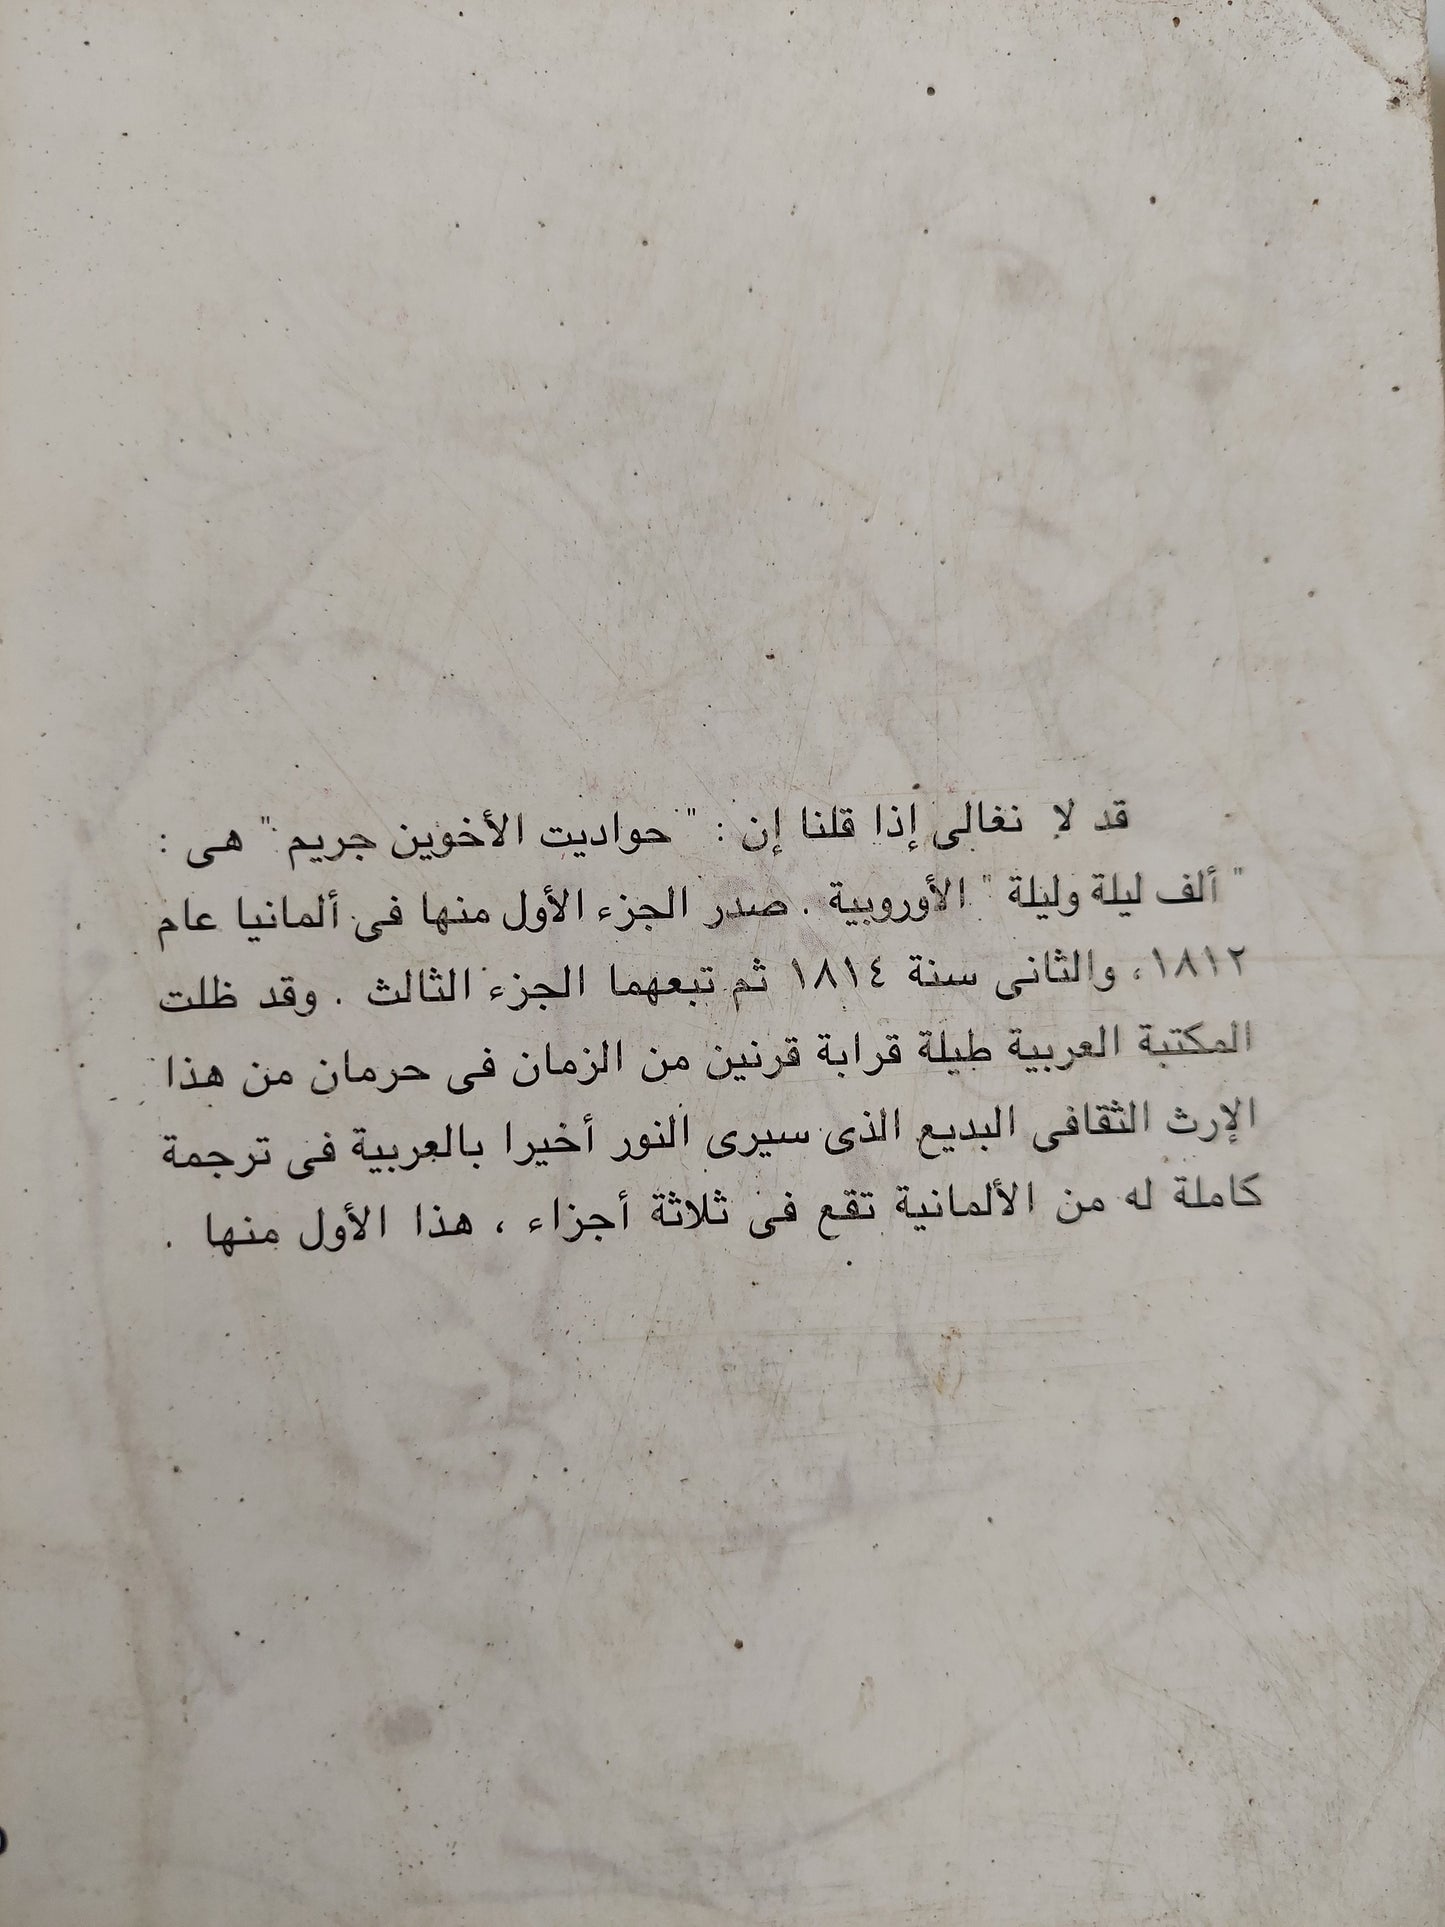 قد لا نغالى إذا قلنا إن : " حواديت الأخوين جريم " هى :
" ألف ليلة وليلة " الأوروبية . صدر الجزء الأول منها فى ألمانيا عام
١٨١٢، والثانى سنة ١٨١٤ ثم تبعهما الجزء الثالث . وقد ظلت
المكتبة العربية طيلة قرابة قرنين من الزمان فى حرمان من هذا
الإرث الثقافى البديع الذى سيرى النور أخيرا بالعربية فى ترجمة
كاملة له من الألمانية تقع فى ثلاثة أجزاء ، هذا الأول منها .